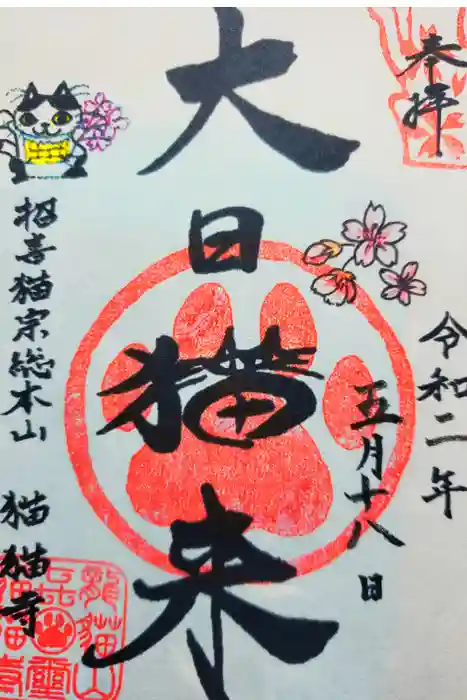 奉拝
令和二年
五月十八日
大日猫来
招喜猫宗総本山　猫猫寺